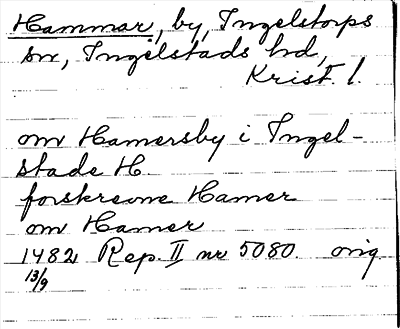 Hammar, by, Ingelstorps
sn, Ingelstads hd,
Krist. l.
om Hamersby i Ingel-
stade H
forskreone Hamer
om Hamer
1482 Rep. II nr 5080. orig
13/9